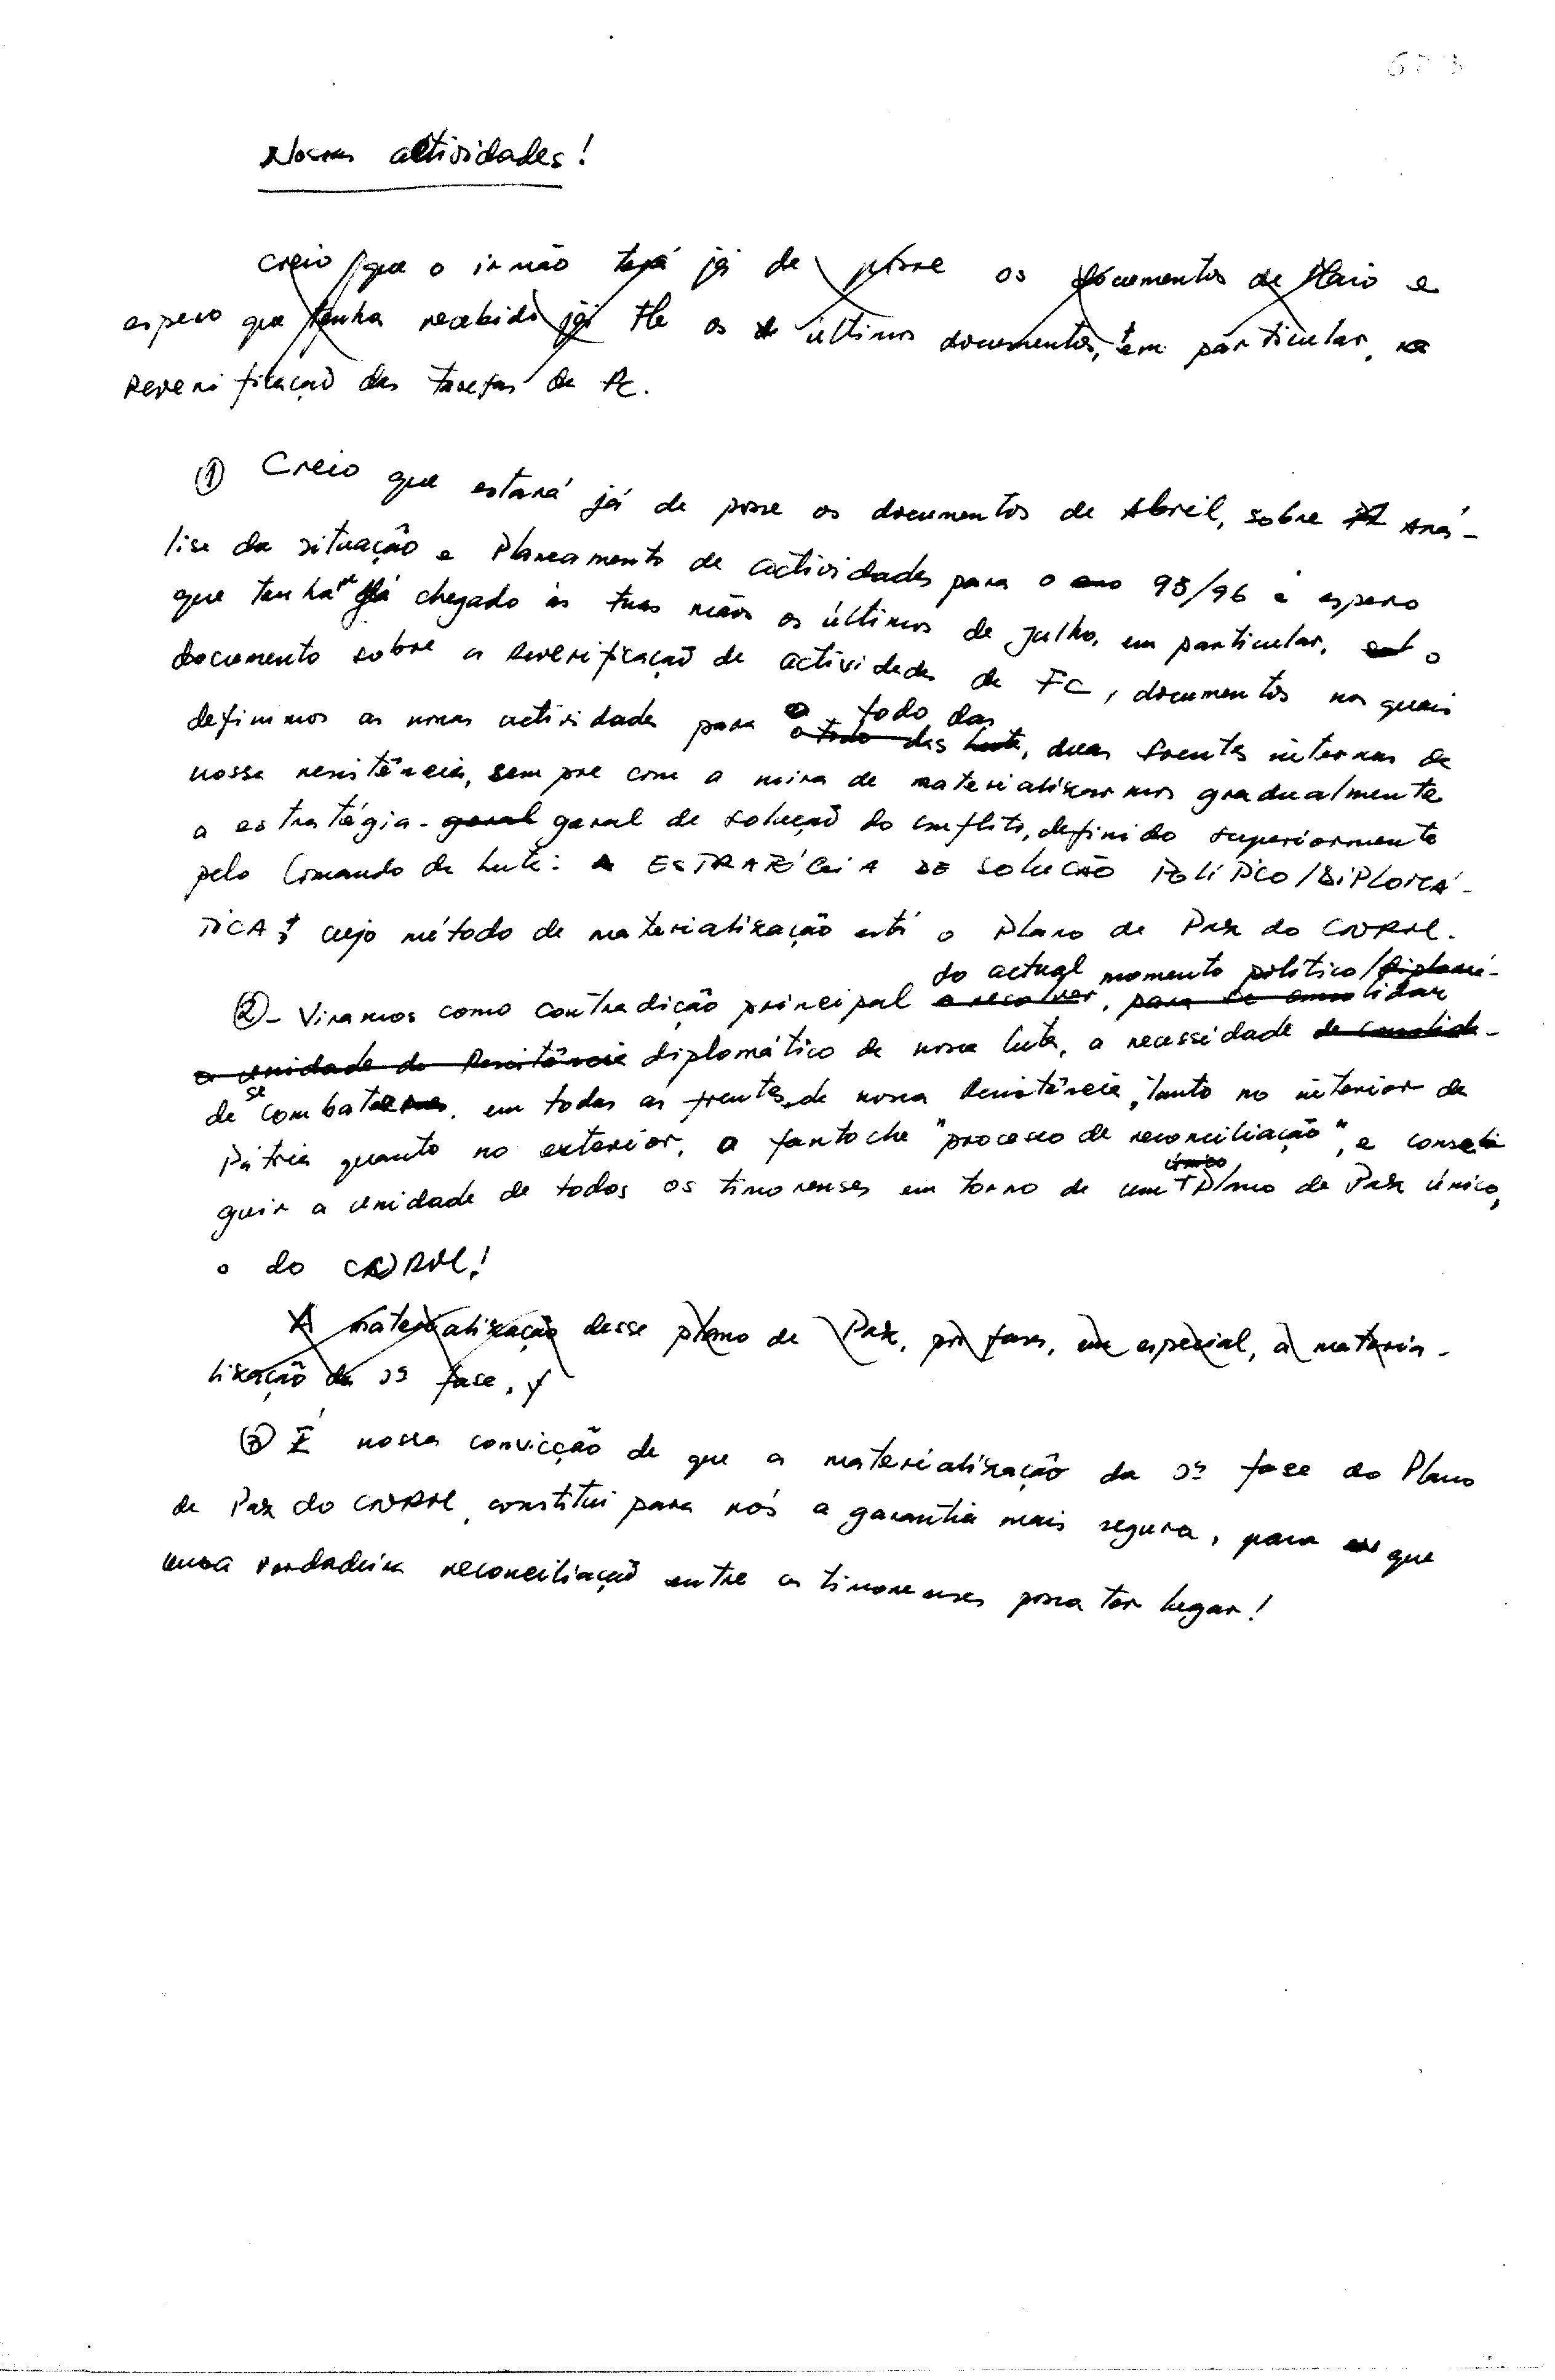 Nossas actividades!
Creio que o irmão terá já de posse os documentos de Maio e
espero que tenha recebido já os últimos documentos, em particular, a
Reverificação das tarefas da FC.
① Creio que estará já de posse os documentos de Abril, sobre Aná-
lise da situação e Planeamento de actividades para o ano 95/96 e espero
que tenham já chegado às tuas mãos os últimos de Julho, em particular, o
documento sobre a Reverificação de actividades da FC, documentos nos quais
definimos as novas actividades para o todo das
o todo das luta, duas frentes internas da
nossa resistência, sempre com a mira de materializarmos gradualmente
a estratégia - geral geral de solução do conflito, definido superiormente
pelo Comando da Luta: A ESTRATÉGIA DE SOLUÇÃO POLÍTICO/DIPLOMÁ-
TICA, cujo método de materialização está o Plano de Paz do CNRM.
do actual momento político/diplomá-
② - Viramos como contradição principal a resolver, para se consolidar
a unidade da Resistência diplomático da nossa luta, a necessidade de consolida-
de se combater, em todas as frentes da nossa Resistência, tanto no interior da
Pátria quanto no exterior, o fantoche "processo de reconciliação", e conse-
único
guir a unidade de todos os timorenses em torno de um Plano de Paz único,
o do CNRM!
A materialização desse plano de Paz, por fases, em especial, a materia-
lização da 2ª fase,
③ É nossa convicção de que a materialização da 2ª fase do Plano
de Paz do CNRM, constitui para nós a garantia mais segura, para que
uma verdadeira reconciliação entre os timorenses possa ter lugar!